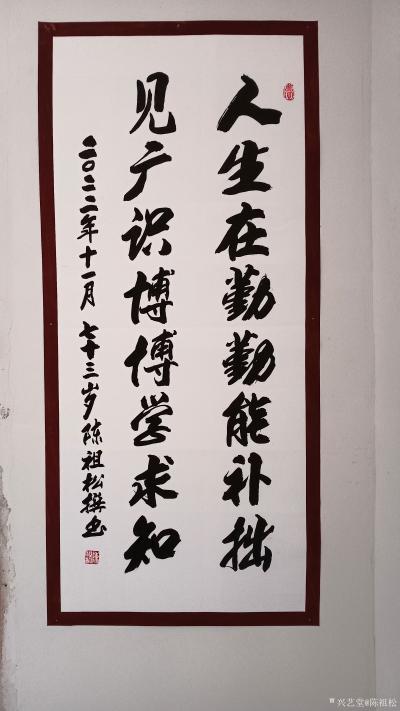 人生在勤勤能补拙
见广识博博学求知
二〇二二年十一月七十三岁陈祖松撰书
兴艺堂@陈祖松